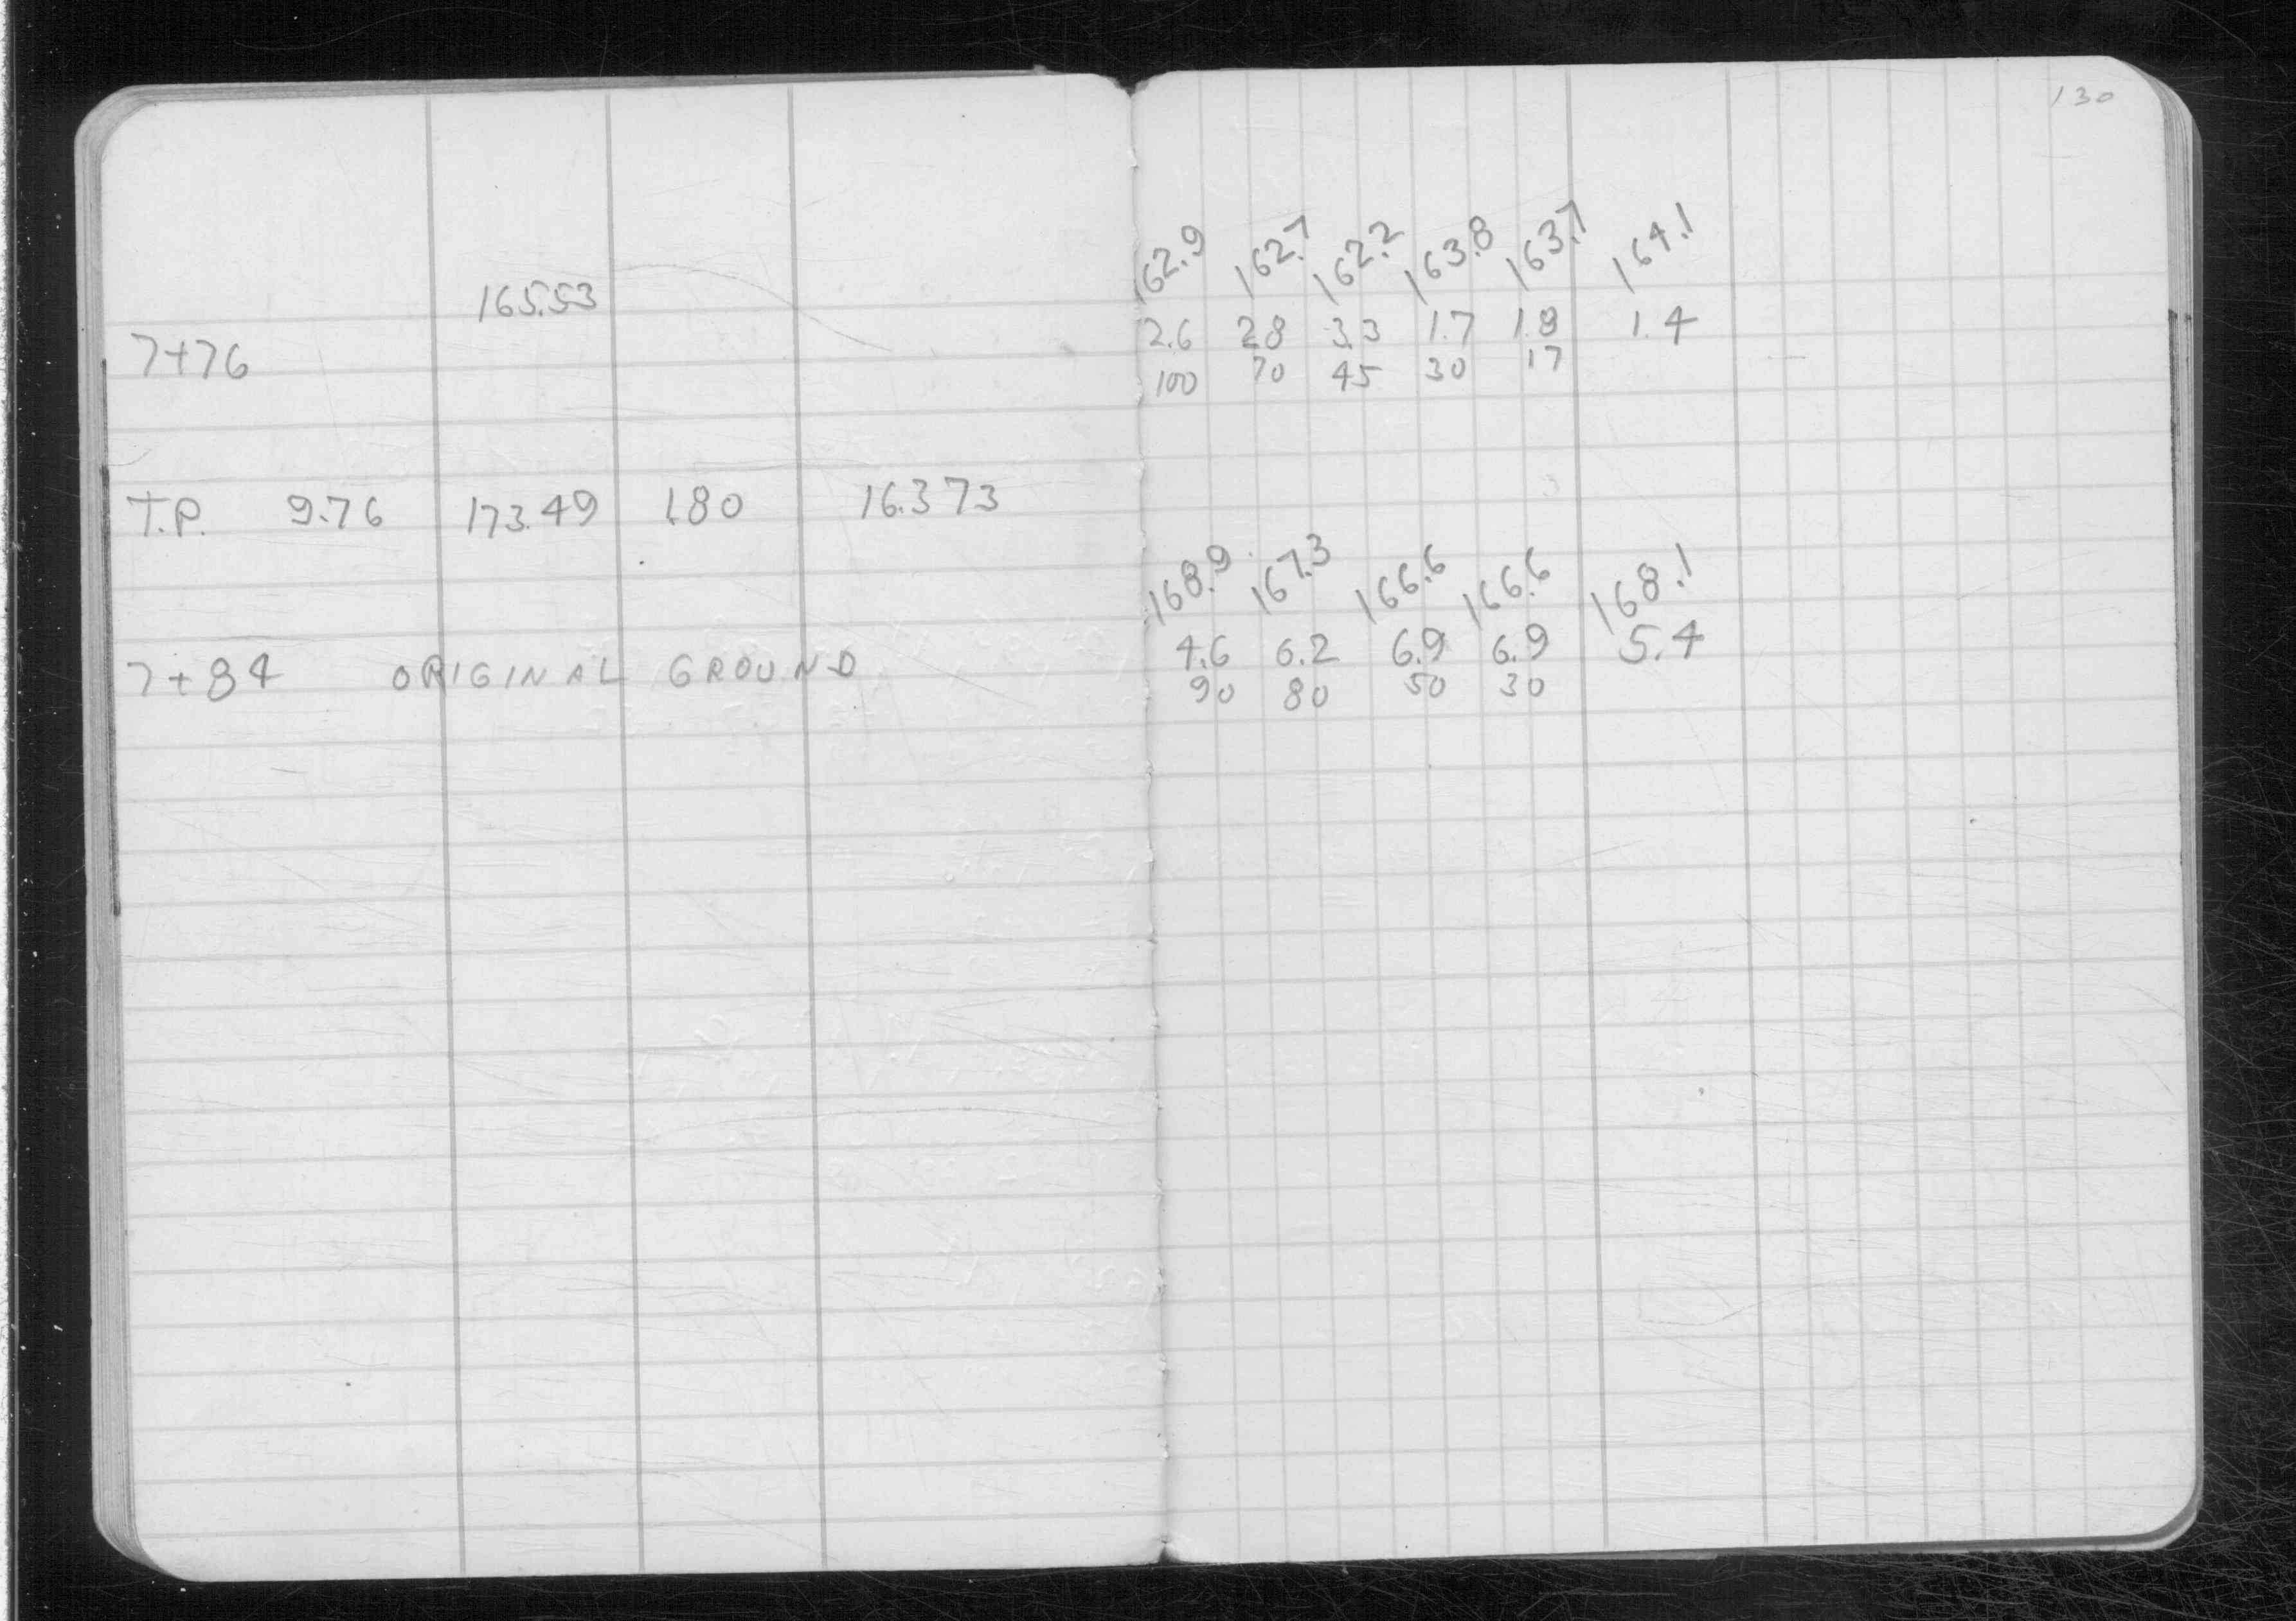 130
162.9 162.7 162.2 163.8 163.7 164.1
165.53
2.6 2.8 3.3 1.7 1.8 1.4
7+76
100 70 45 30 17
T.P. 9.76 173.49 1.80 16.373
168.9 167.3 166.6 166.6 168.1
4.6 6.2 6.9 6.9 5.4
7+84 ORIGINAL GROUND
90 80 50 30